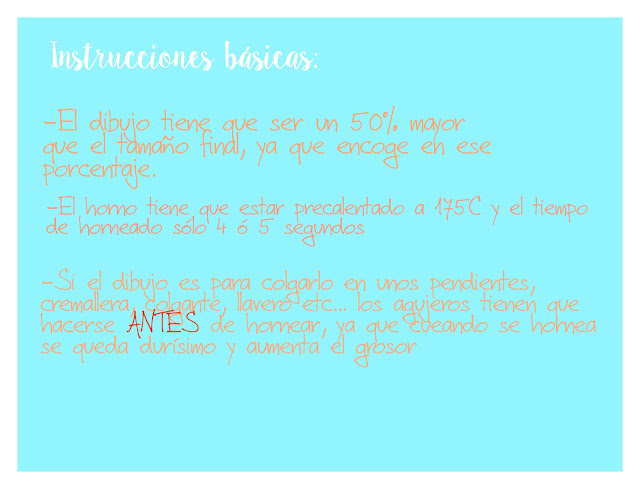 Instrucciones básicas:
-El dibujo tiene que ser un 50% mayor
que el tamaño final, ya que encoge en ese
porcentaje.
-El horno tiene que estar precalentado a 175C y el tiempo
de horneado sólo 4 ó 5 segundos
-Si el dibujo es para colgarlo en unos pendientes,
cremallera, colgante, llavero etc... los agujeros tienen que
hacerse ANTES de hornear, ya que cueando se hornea
se queda durísimo y aumenta el grosor